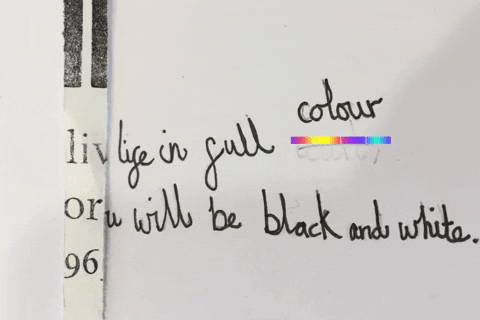 liv life in full colour
or u will be black and white.
96